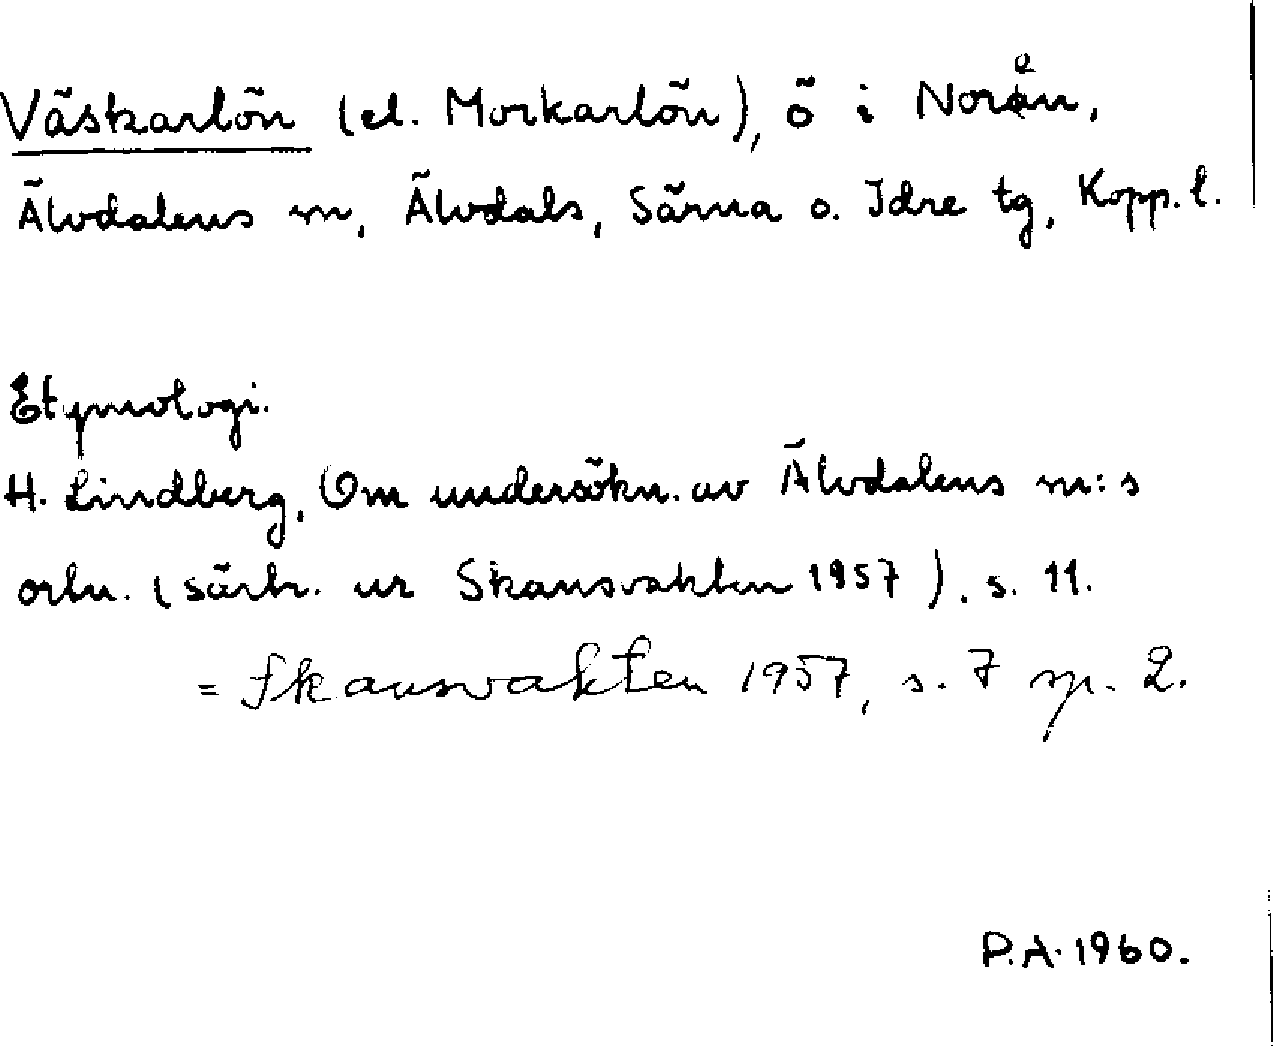 Väskarlön (el. Morkarlön), ö i Norån,
Älvdalens m, Älvdals, Särna o. Idre tg, Kopp. l.
Etymologi.
H. Lindberg, Om undersökn. av Älvdalens m:s
ortn. (särtr. ur Skansvakten 1957). s. 11.
= Skansvakten 1957, s. 7 sp. 2.
P.A. 1960.